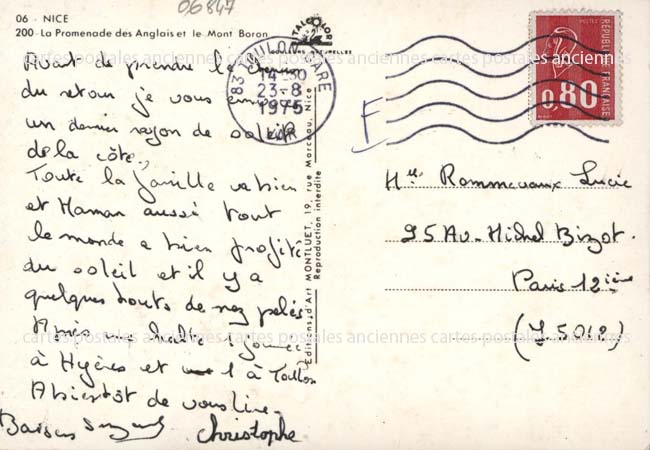 06847
06 - NICE
200 - La Promenade des Anglais et le Mont Boron
Avant de prendre le chemin
du retour je vous envoie
un dernier rayon de soleil
de la côte,
Toute la famille va bien
et Maman aussi tout
le monde a bien profité
du soleil et il y a
quelques bouts de nez pelés
Après une halte 1 journée
à Hyères et 1 à Toulon
A bientôt de vous lire.
Baisers
Christophe
83 TOULON GARE
14-30
23-8
1975
VAR
Editions d'Art MONTLUET, 19, rue Marceau, Nice
Reproduction interdite
POSTES
RÉPUBLIQUE FRANÇAISE
0,80
F
Mlle Rommevaux Lucie
95 Av. Michel Bizot.
Paris 12ième
(75012)
cartes postales anciennes cartes postales anciennes cartes postales anciennes
cartes postales anciennes cartes postales anciennes cartes postales anciennes